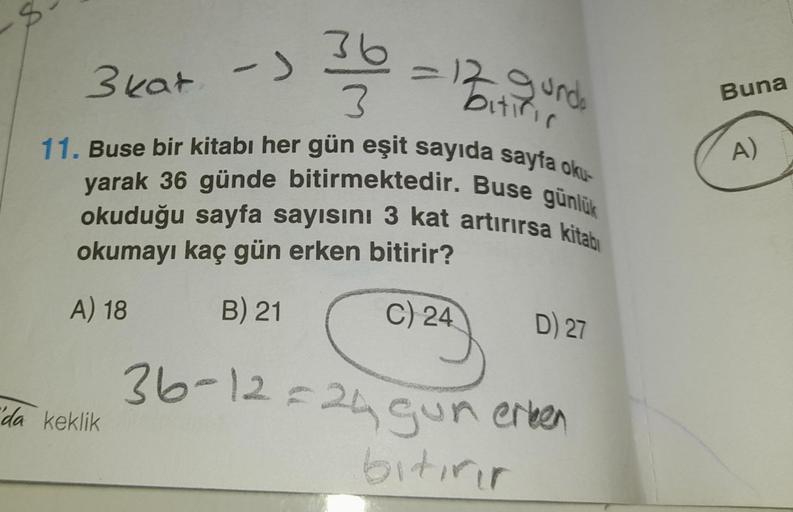 3 kat -> 36/3 = 12 günde bitirir
Buna
A)
11. Buse bir kitabı her gün eşit sayıda sayfa oku-
yarak 36 günde bitirmektedir. Buse günlük
okuduğu sayfa sayısını 3 kat artırırsa kitabı
okumayı kaç gün erken bitirir?
A) 18 B) 21 C) 24 D) 27
36-12 = 24 gün erken
bitirir
'da keklik